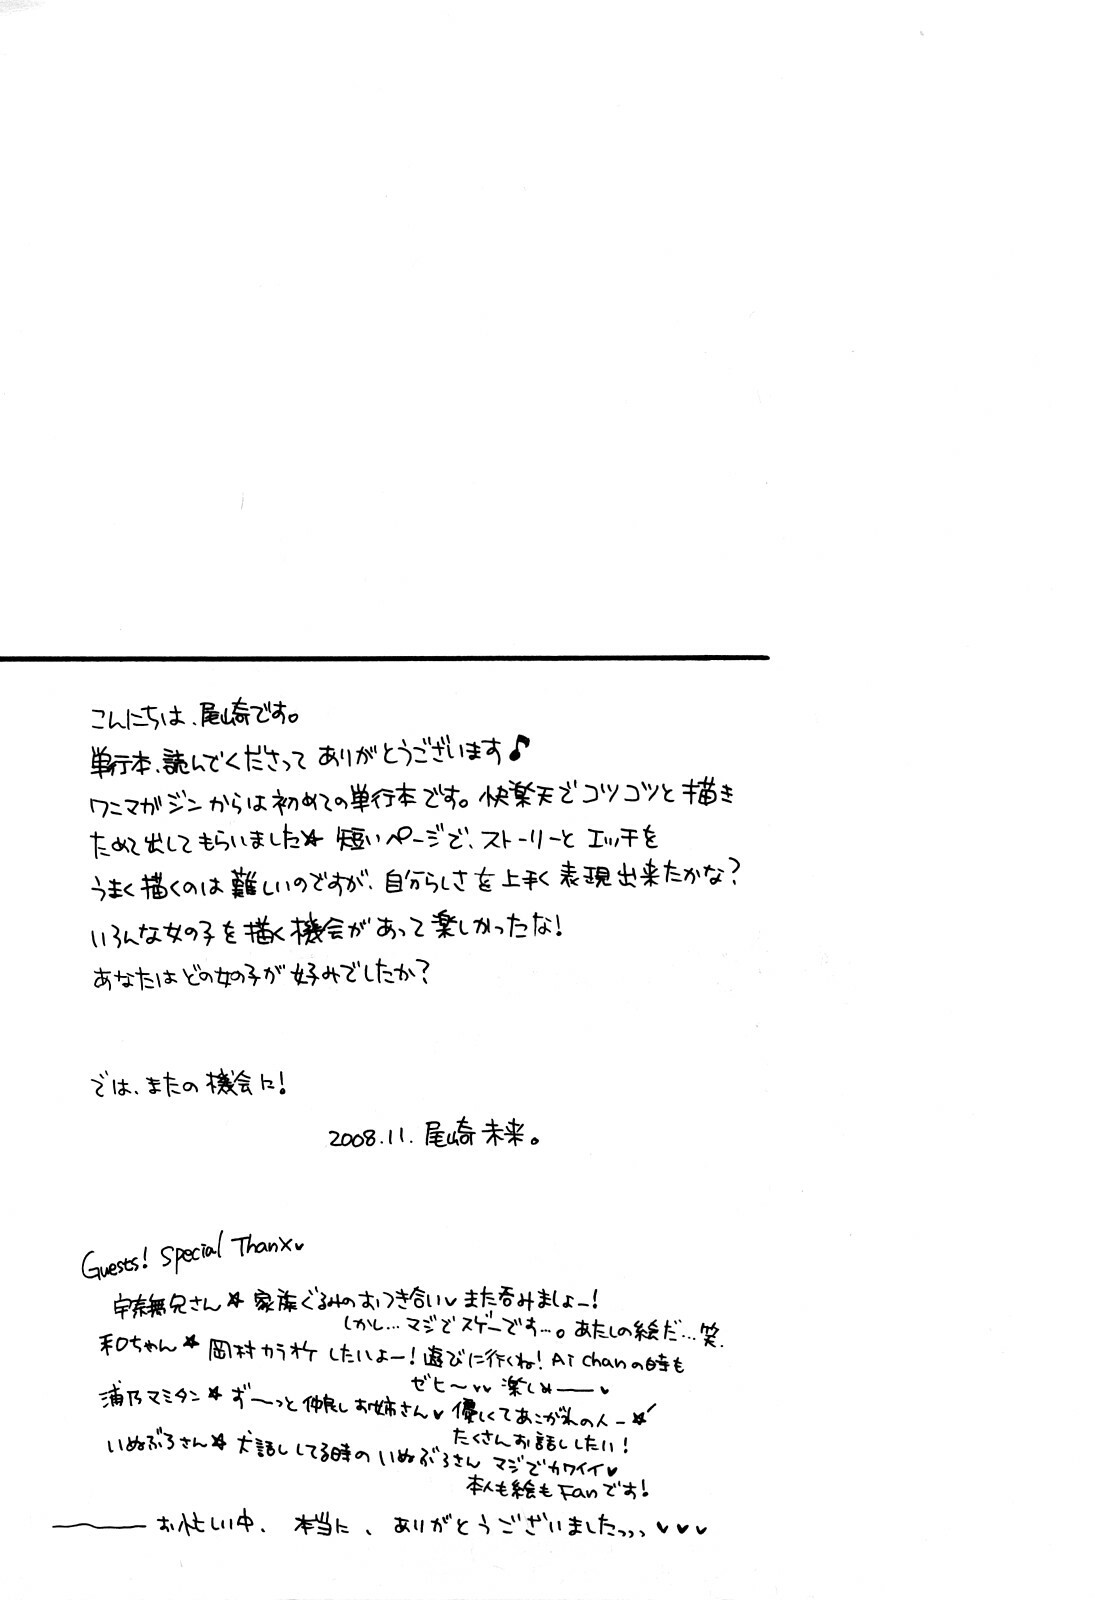 こんにちは、尾崎です。
単行本、読んでくださって ありがとうございます♪
ワニマガジンからは初めての単行本です。快楽天でコツコツと描き
ためて出してもらいました☆ 短いページで、ストーリーと エッチを
うまく描くのは難しいのですが、自分らしさを上手く表現出来たかな?
いろんな女の子を描く機会があって楽しかったな!
あなたはどの女の子が好みでしたか?
では、またの機会に!
2008.11. 尾崎未来。
Guests! Special Thanx♥
宇奈無兄さん☆ 家族ぐるみのおつき合い♥また呑みましょー!
しかし…マジでスゲーです…。あたしの絵だ…笑.
和ちゃん☆ 岡村カラオケしたいよー!遊びに行くね! Ai Chanの時も
ゼヒ〜♥♥ 楽しめ――♥
浦乃マミタン☆ ず〜っと仲良しお姉さん♥ 優しくてあこがれの人ー☆
たくさんお話ししたい!
いぬぶろさん☆ 犬話ししてる時の いぬぶろさん マジでカワイイ♥
本人も絵もFanです!
――お忙しい中、本当に、ありがとうございましたっっっ♥♥♥